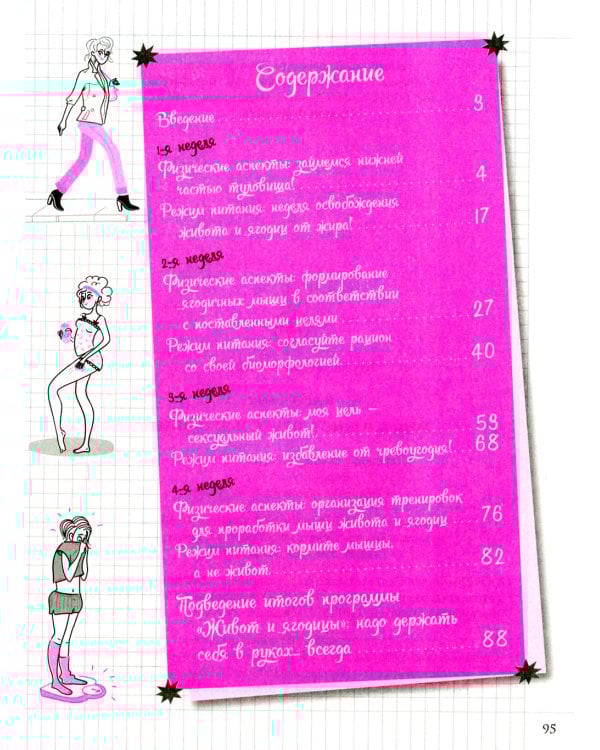 Содержание
Введение 3
1-я неделя
Физические аспекты: займемся нижней
частью туловища! 4
Режим питания: неделя освобождения
живота и ягодиц от жира! 17
2-я неделя
Физические аспекты: формирование
ягодичных мышц в соответствии
с поставленными целями 27
Режим питания: согласуйте рацион
со своей биоморфологией. 40
3-я неделя
Физические аспекты: моя цель –
сексуальный живот!. 59
Режим питания: избавление от чревоугодия! 68
4-я неделя
Физические аспекты: организация тренировок
для проработки мышц живота и ягодиц 76
Режим питания: кормите мышцы,
а не живот. 82
Подведение итогов программы
«Живот и ягодицы»: надо держать
себя в руках всегда 88
95